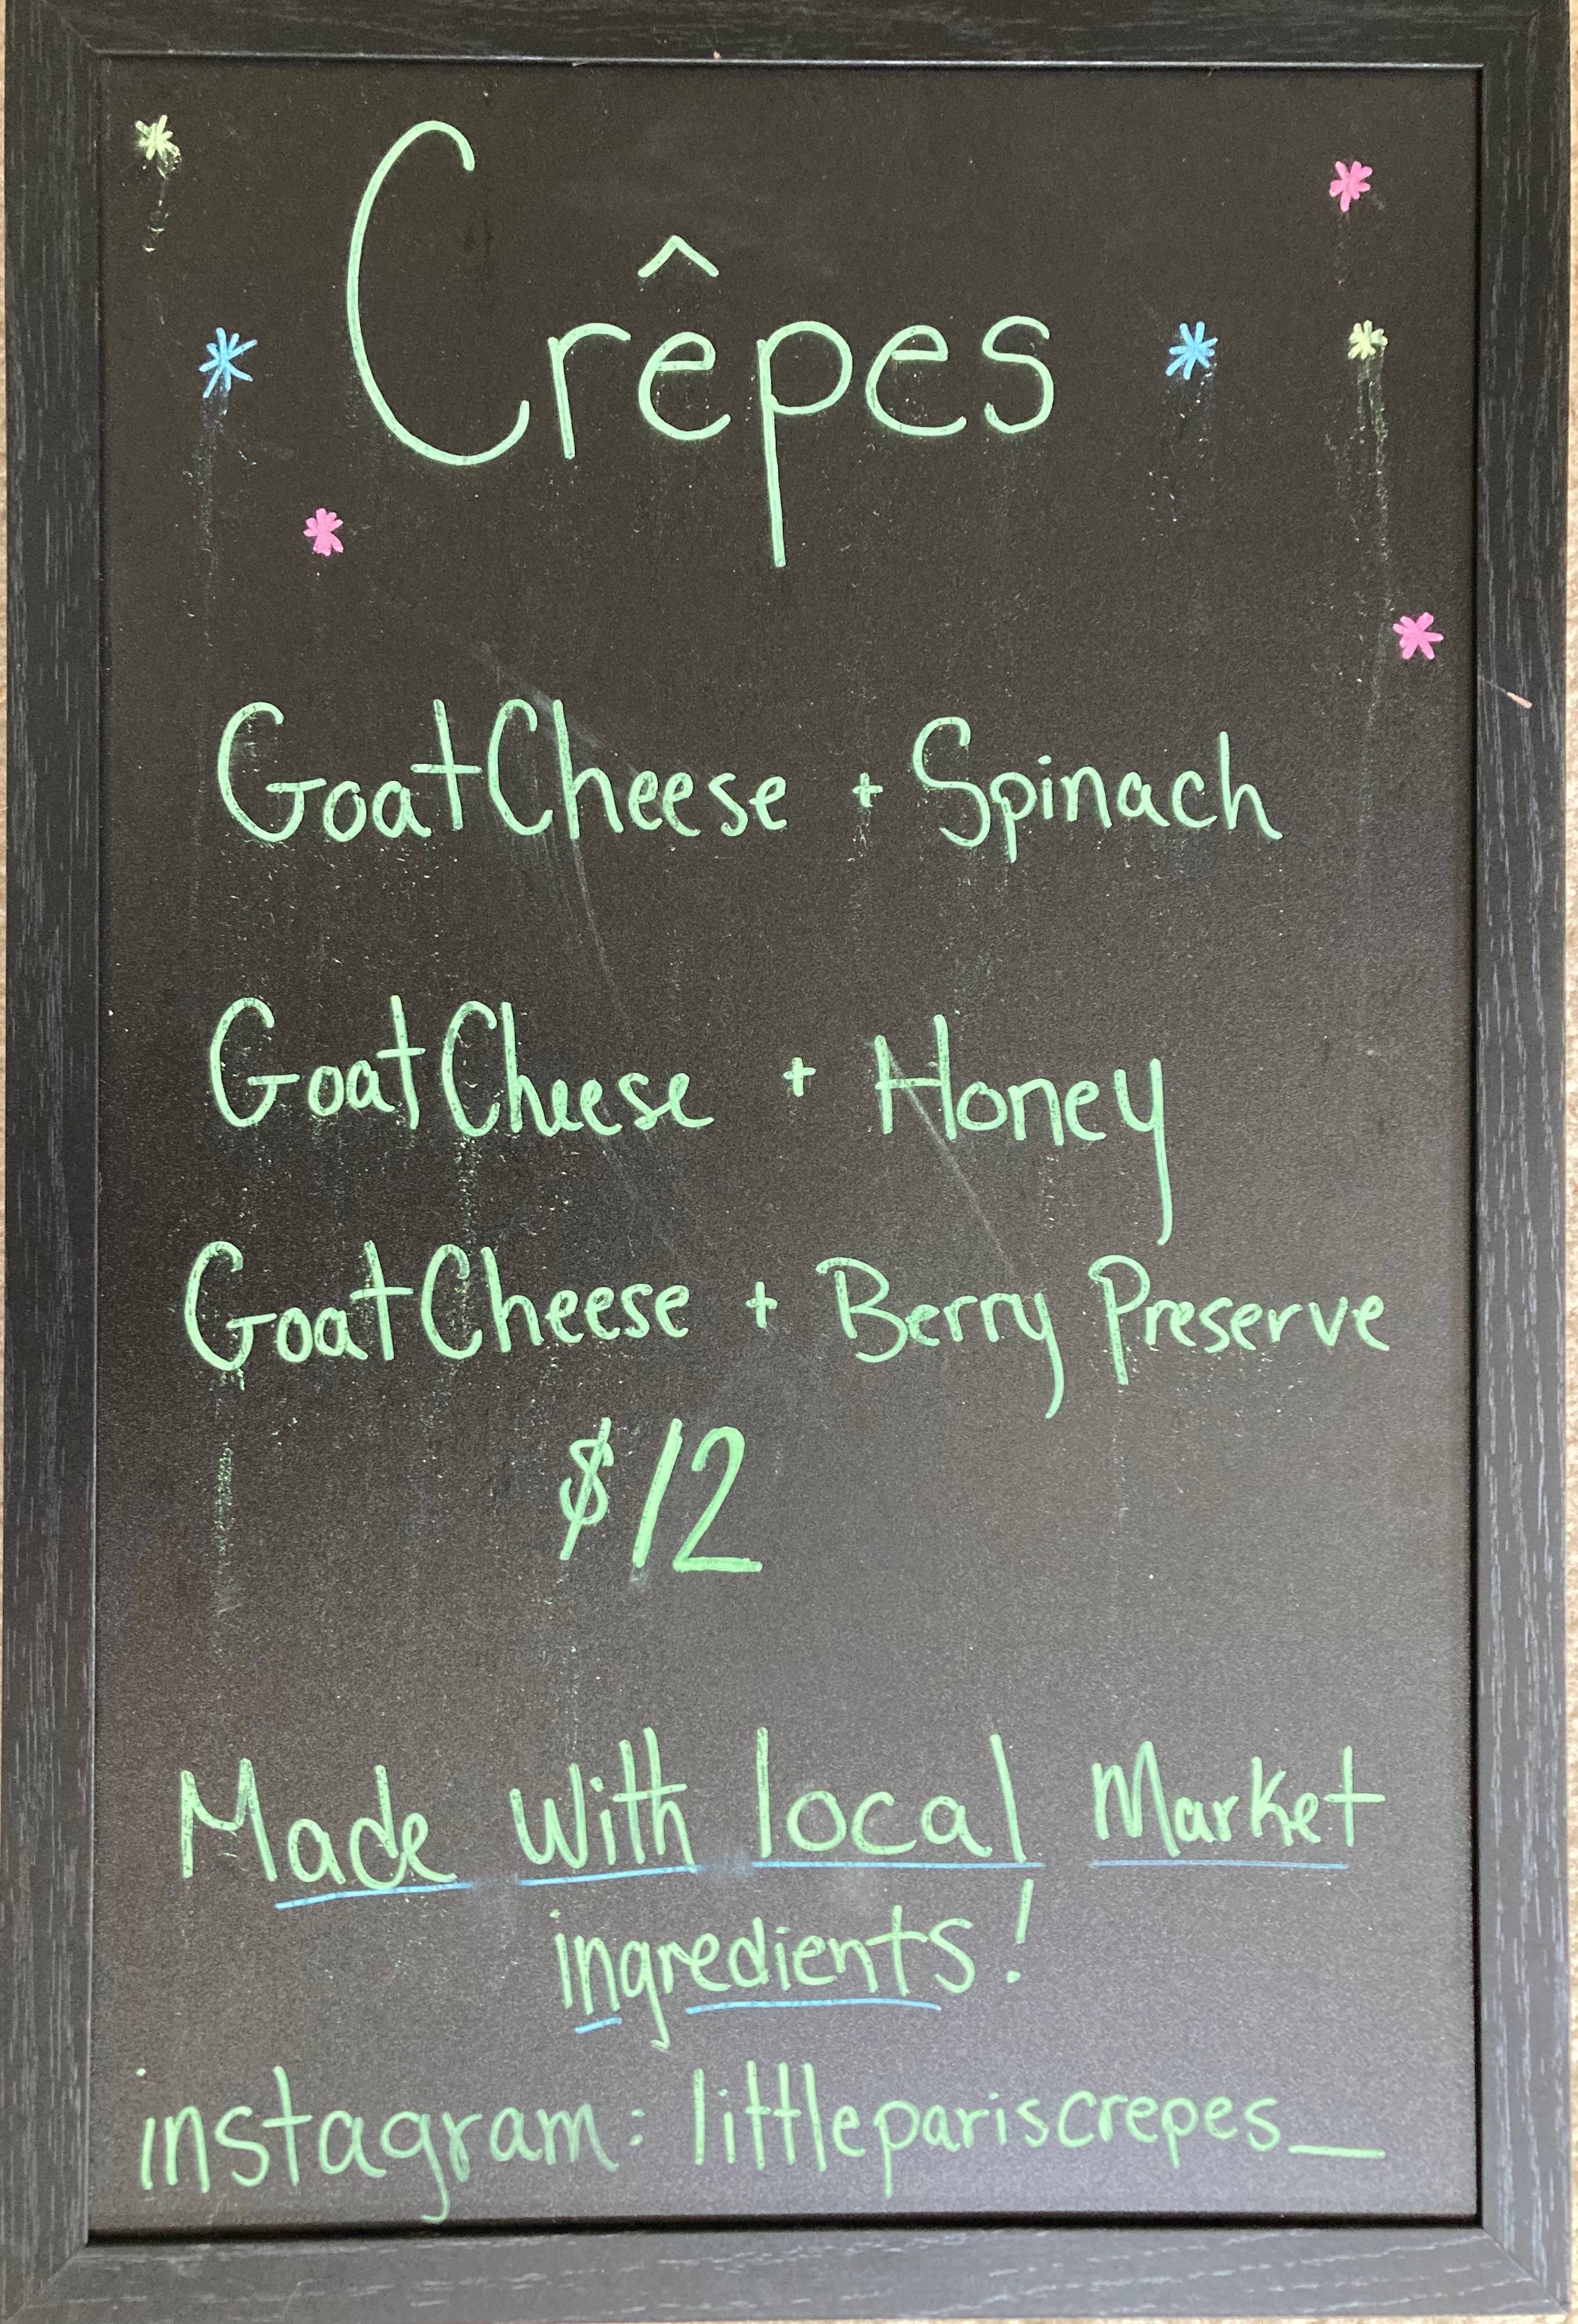 Crêpes
Goat Cheese + Spinach
Goat Cheese + Honey
Goat Cheese + Berry Preserve
$12
Made with local Market
ingredients!
instagram: littlepariscrepes_